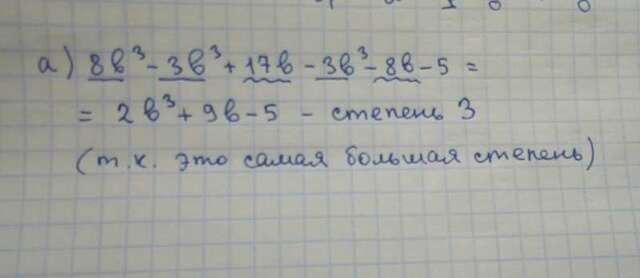 а) 8в³ - 3в³ + 17в - 3в³ - 8в - 5 =
= 2в³ + 9в - 5 - степень 3
(т.к. это самая большая степень)